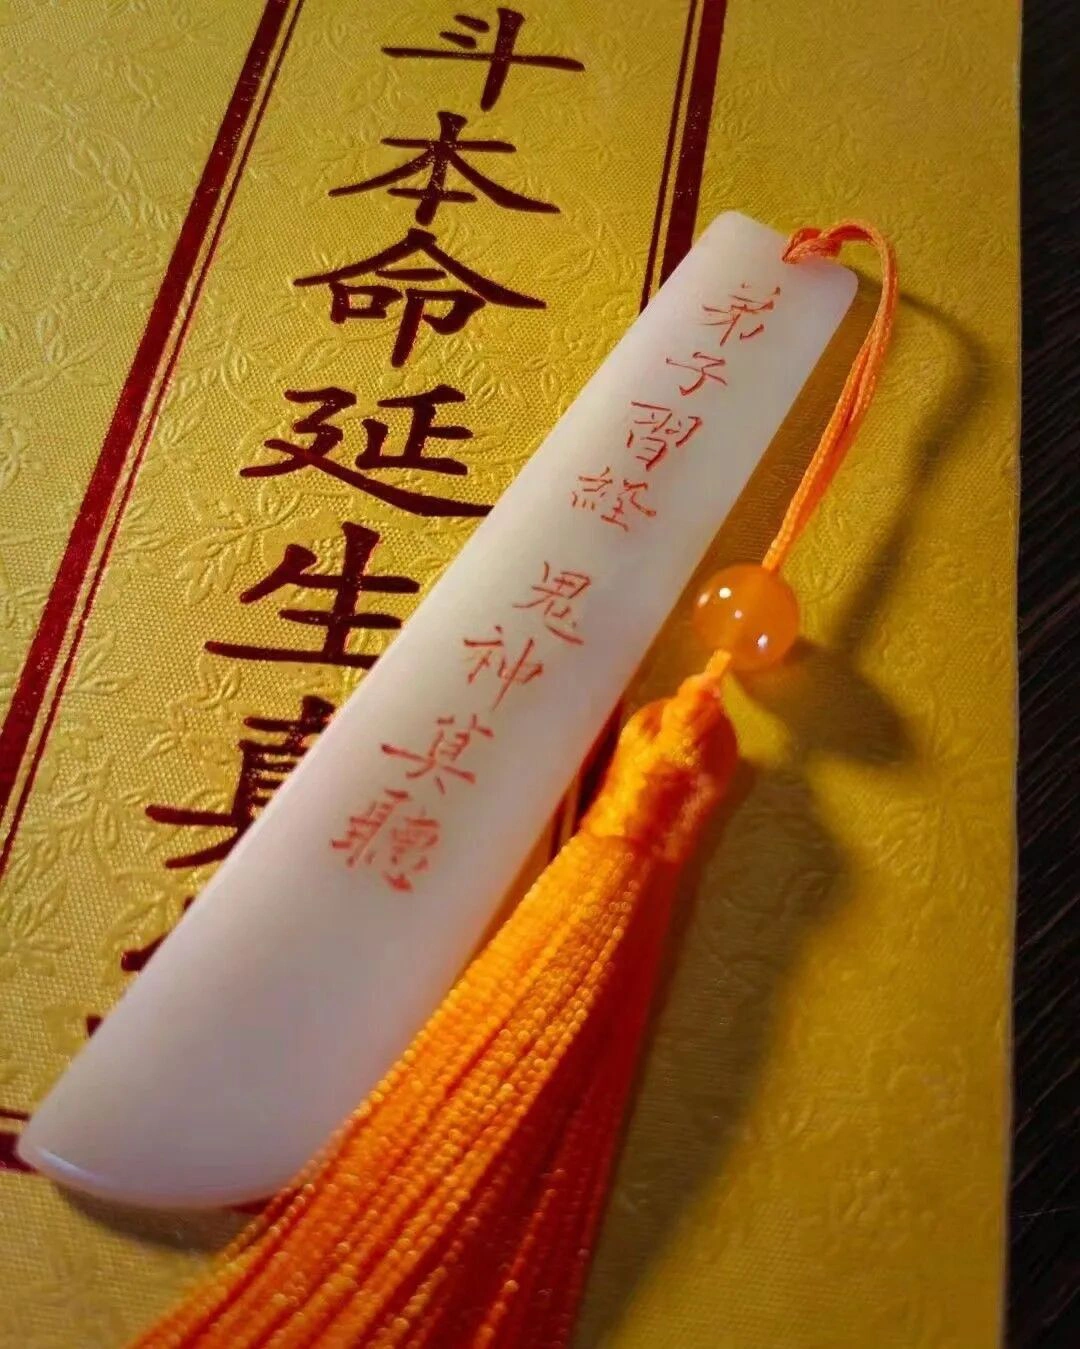 斗本命延生真
弟子習經 鬼神莫聽